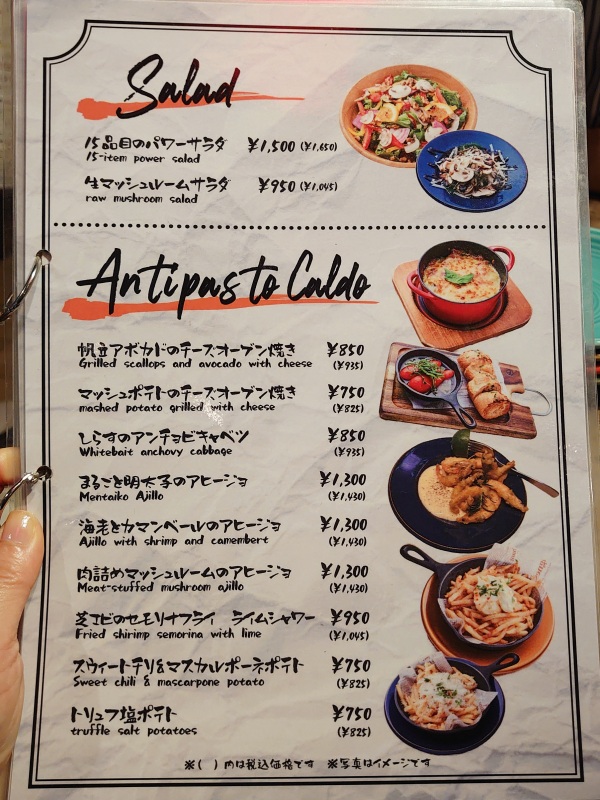 Salad
15品目のパワーサラダ ¥1,500 (¥1,650)
15-item power salad
生マッシュルームサラダ ¥950 (¥1,045)
raw mushroom salad
Antipasto Caldo
帆立アボカドのチーズオーブン焼き ¥850
Grilled scallops and avocado with cheese (¥935)
マッシュポテトのチーズオーブン焼き ¥750
mashed potato grilled with cheese (¥825)
しらすのアンチョビキャベツ ¥850
Whitebait anchovy cabbage (¥935)
まるごと明太子のアヒージョ ¥1,300
Mentaiko Ajillo (¥1,430)
海老とカマンベールのアヒージョ ¥1,300
Ajillo with shrimp and camembert (¥1,430)
肉詰めマッシュルームのアヒージョ ¥1,300
Meat-stuffed mushroom ajillo (¥1,430)
芝エビのセモリナフライ ライムシャワー ¥950
Fried shrimp semorina with lime (¥1,045)
スウィートチリ&マスカルポーネポテト ¥750
Sweet chili & mascarpone potato (¥825)
トリュフ塩ポテト ¥750
truffle salt potatoes (¥825)
※( )内は税込価格です ※写真はイメージです